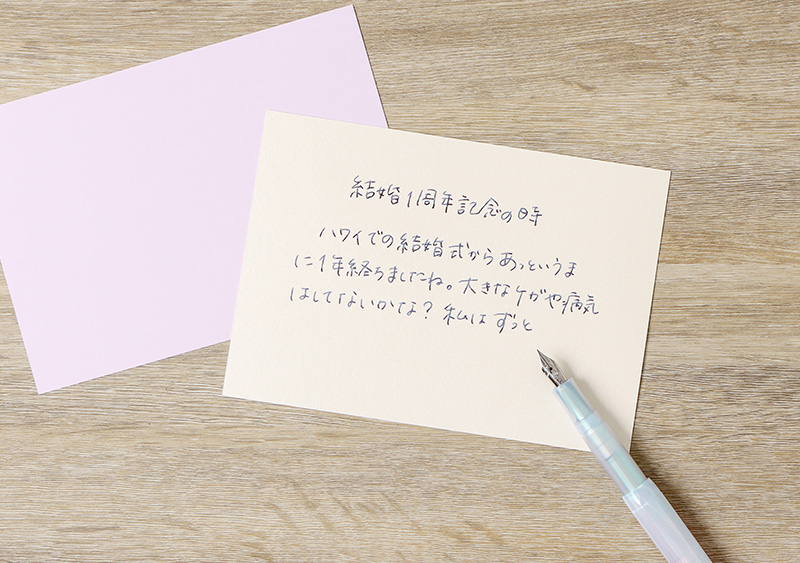 結婚1周年記念の時
ハワイでの結婚式からあっというま
に1年経ちましたね。大きなケガや病気
はしてないかな？私はずっと